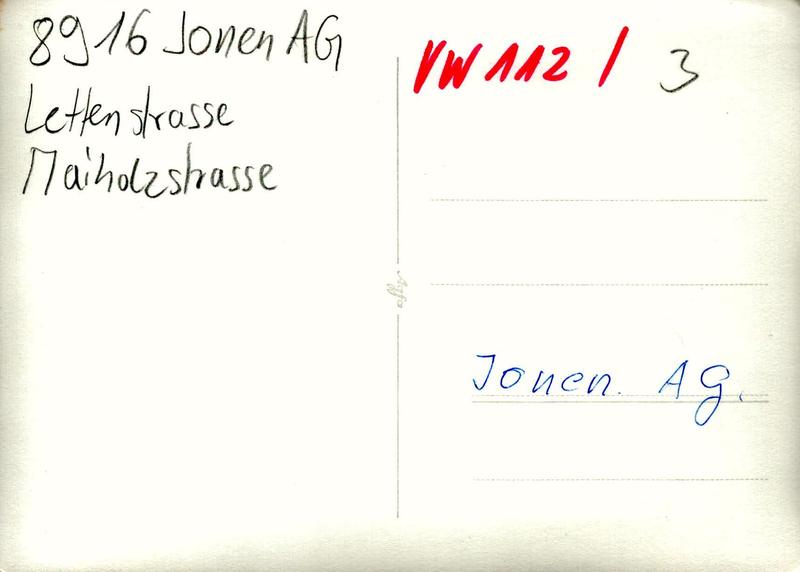 8916 Jonen AG
Lettenstrasse
Maiholzstrasse
VW 112 / 3
Agfa
Jonen. AG.